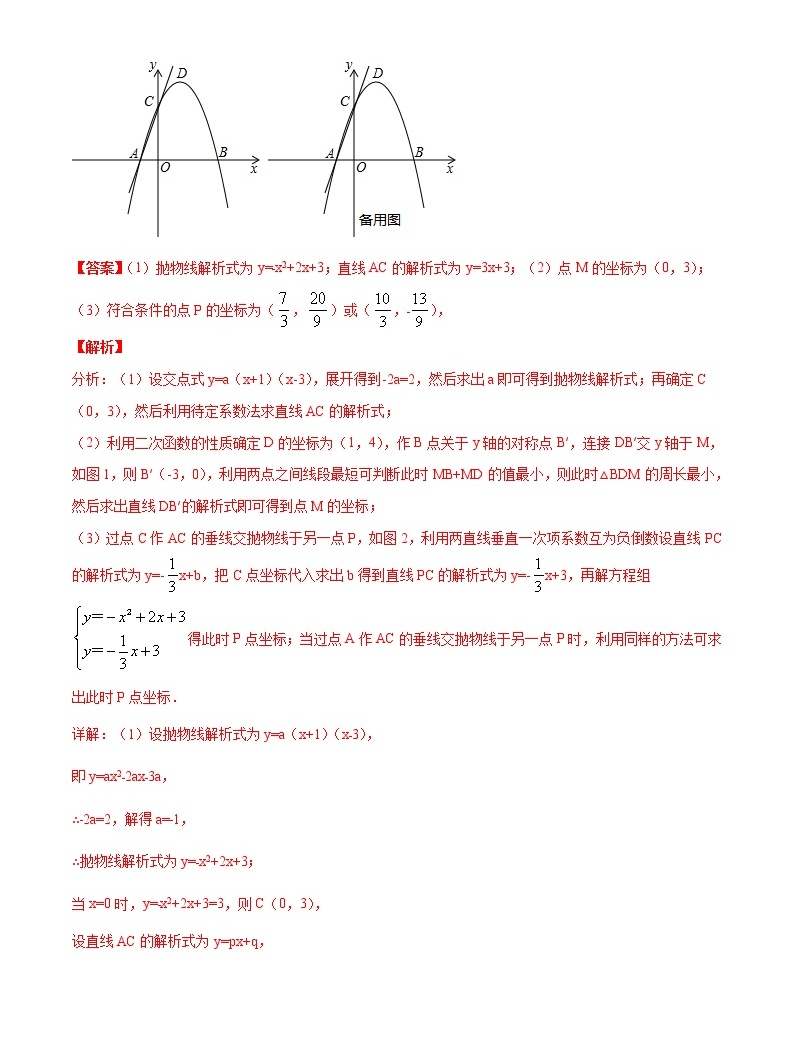 y D y D
C C
A B A B
O x O x
备用图
【答案】（1）抛物线解析式为 y=-x²+2x+3；直线 AC 的解析式为 y=3x+3；（2）点 M 的坐标为（0，3）；
（3）符合条件的点 P 的坐标为（7/3，20/9）或（10/3，-13/9），
【解析】
分析：（1）设交点式 y=a（x+1）（x-3），展开得到-2a=2，然后求出 a 即可得到抛物线解析式；再确定 C
（0，3），然后利用待定系数法求直线 AC 的解析式；
（2）利用二次函数的性质确定 D 的坐标为（1，4），作 B 点关于 y 轴的对称点 B′，连接 DB′交 y 轴于 M，
如图 1，则 B′（-3，0），利用两点之间线段最短可判断此时 MB+MD 的值最小，则此时△BDM 的周长最小，
然后求出直线 DB′的解析式即可得到点 M 的坐标；
（3）过点 C 作 AC 的垂线交抛物线于另一点 P，如图 2，利用两直线垂直一次项系数互为负倒数设直线 PC
的解析式为 y=-1/3x+b，把 C 点坐标代入求出 b 得到直线 PC 的解析式为 y=-1/3x+3，再解方程组
{y=-x²+2x+3
y=-1/3x+3 得此时 P 点坐标；当过点 A 作 AC 的垂线交抛物线于另一点 P 时，利用同样的方法可求
出此时 P 点坐标．
详解：（1）设抛物线解析式为 y=a（x+1）（x-3），
即 y=ax²-2ax-3a，
∴-2a=2，解得 a=-1，
∴抛物线解析式为 y=-x²+2x+3；
当 x=0 时，y=-x²+2x+3=3，则 C（0，3），
设直线 AC 的解析式为 y=px+q，